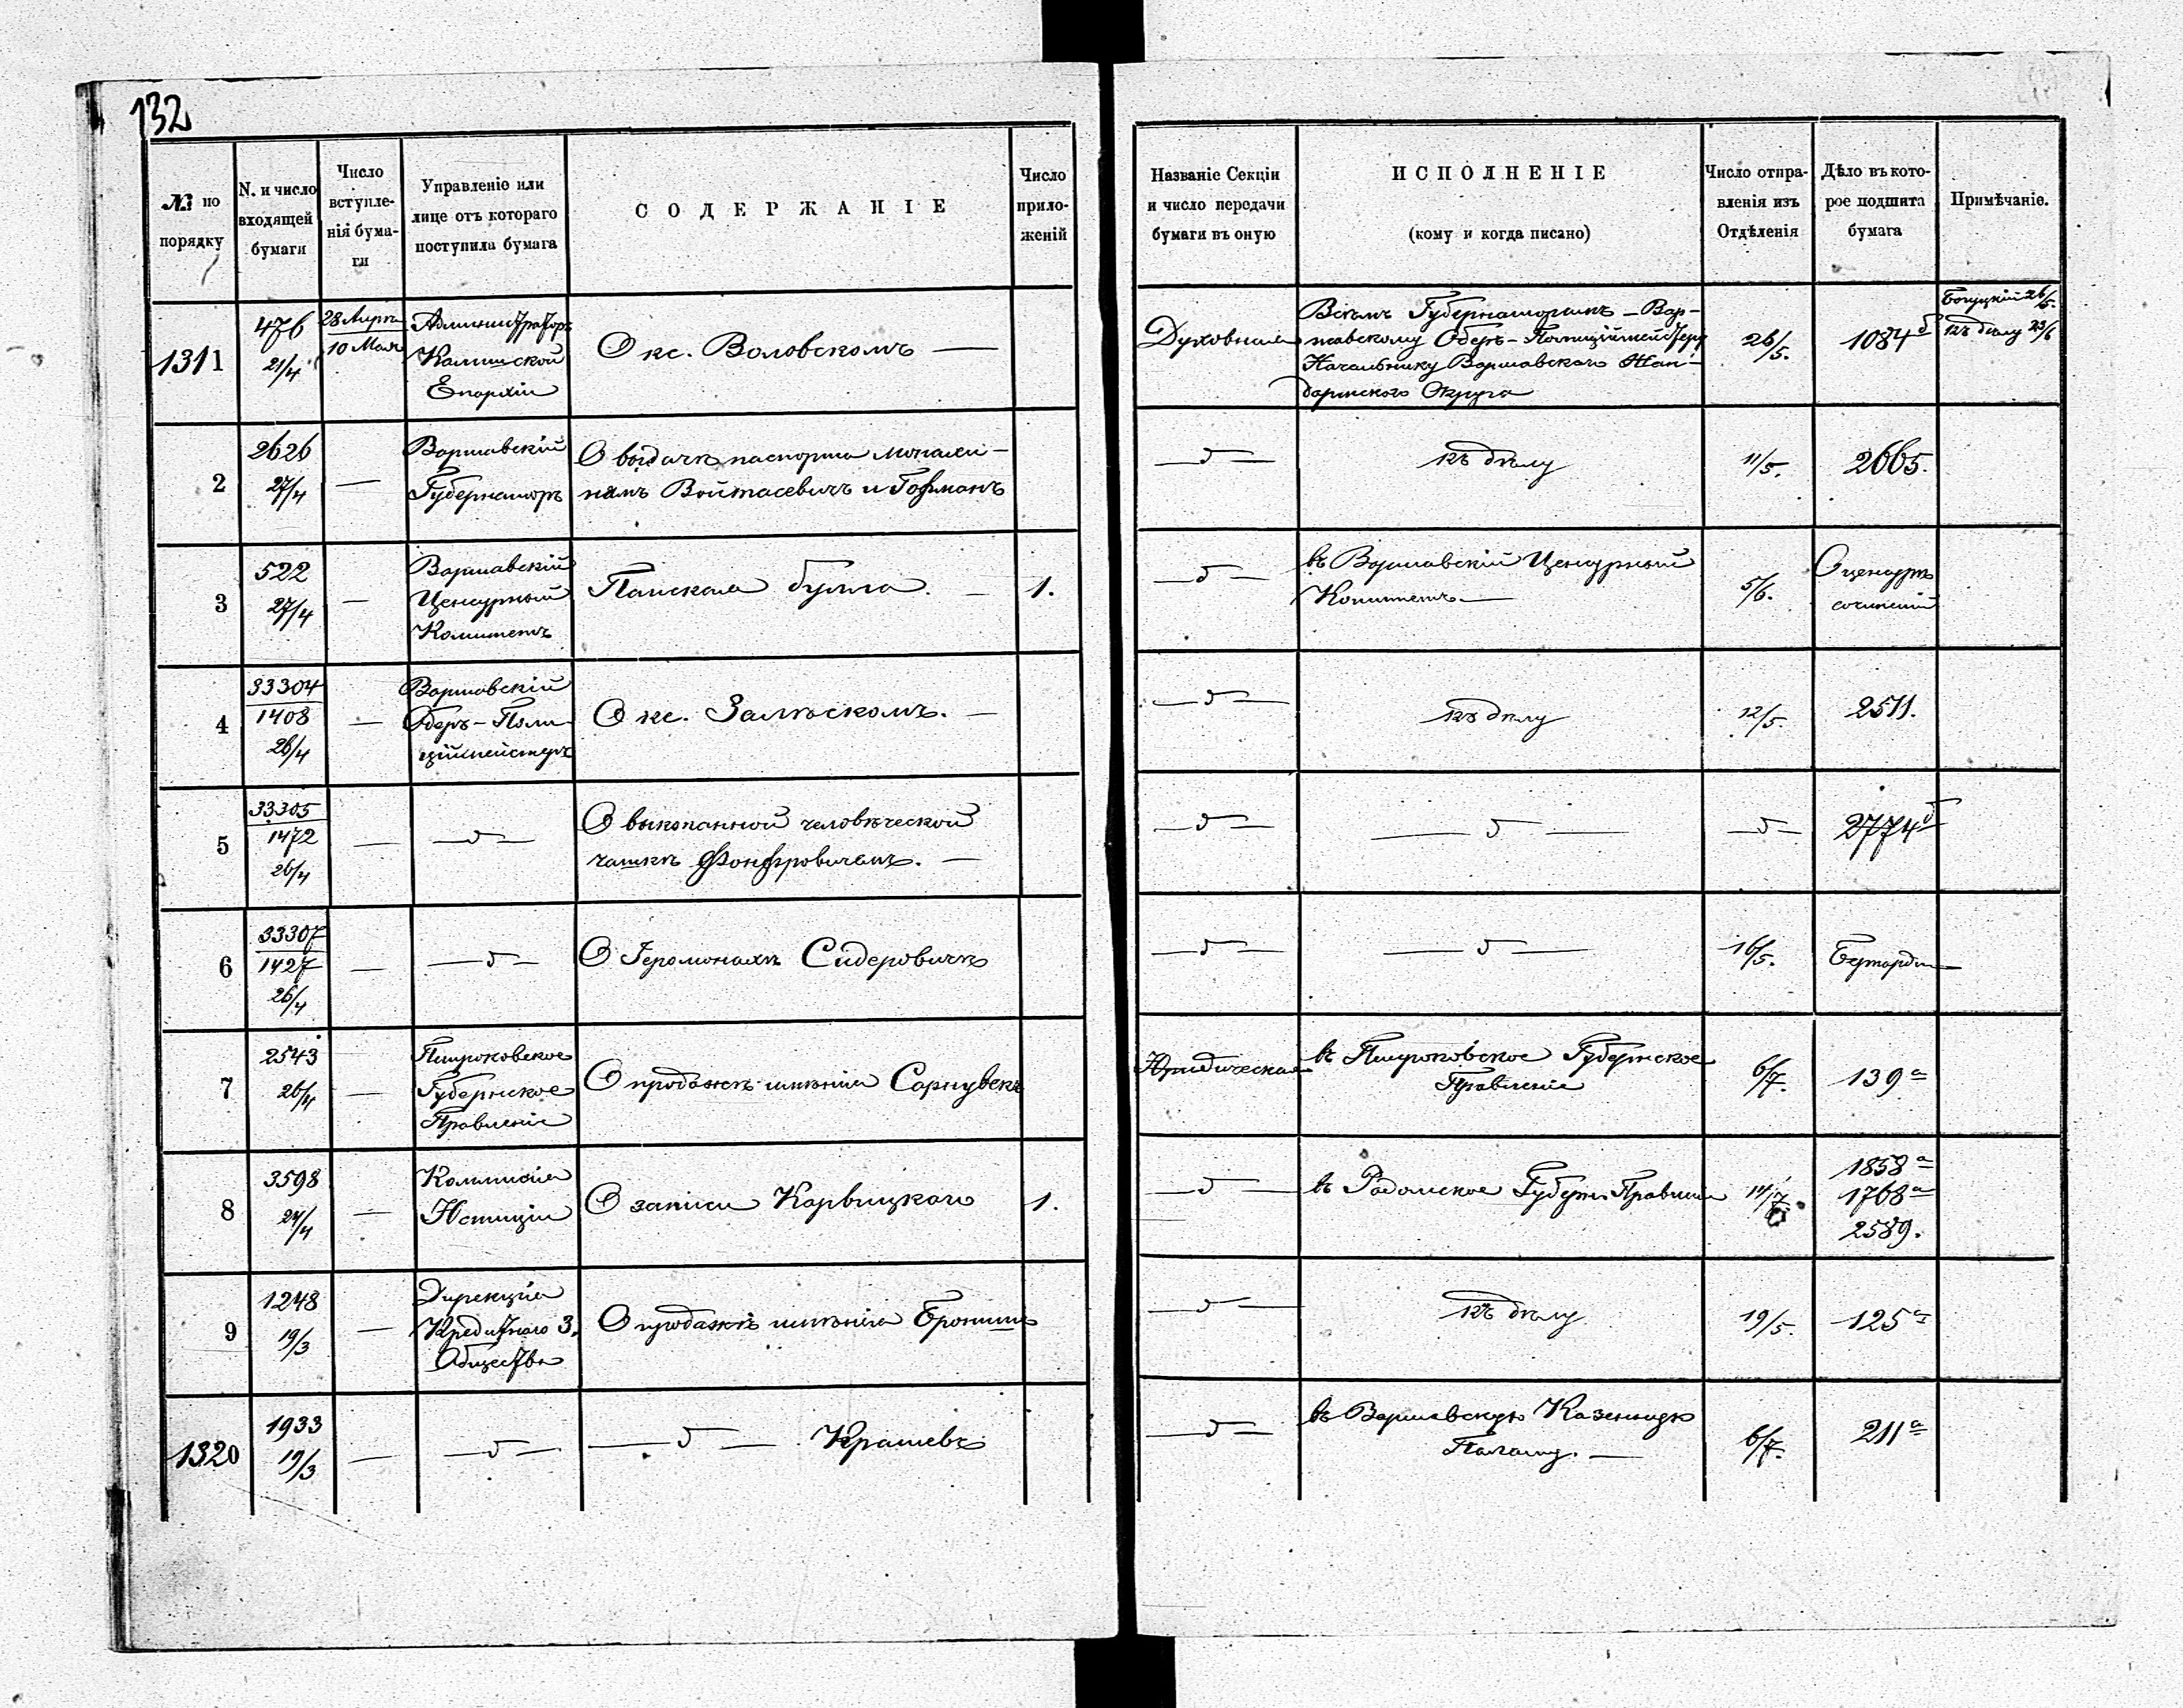 132
№ по порядку
N. и число входящей бумаги
Число вступленія бумаги
Управленіе или лице отъ котораго поступила бумага
СОДЕРЖАНІЕ
Число приложеній
Названіе Секціи и число передачи бумаги въ оную
ИСПОЛНЕНІЕ
(кому и когда писано)
Число отправленія изъ Отдѣленія
Дѣло въ которое подшита бумага
Примѣчаніе.
1311
476
21/4
28 Апрѣ
10 Мая
Администраторъ
Калишской
Епархіи
О кс. Воловскомъ —
Духовная
Всѣмъ Губернаторамъ – Вар-
шавскому Оберъ-Полиціймейстеру
Начальнику Варшавскаго Жан-
дармскаго Округа
26/5.
1084 б
26/5.
къ дѣлу 23/6
2
2626
27/4
—
Варшавскій
Губернаторъ
О выдачѣ паспорта монахи-
нямъ Войтасевичъ и Гофманъ
— д —
къ дѣлу
11/5.
2665.
3
522
27/4
—
Варшавскій
Цензурный
Комитетъ
Папская булла. —
1.
— д —
въ Варшавскій Цензурный
Комитетъ. —
5/6.
О цензурѣ
сочиненій
4
33304
1408
26/4
—
Варшавскій
Оберъ-Поли
ціймейстеръ
О кс. Залѣскомъ. —
— д —
къ дѣлу
12/5.
2511.
5
33305
1472
26/4
—
— д —
О выкопанной человѣческой
чашкѣ —
— д —
— д —
— д —
2774 б
6
33307
1427
26/4
—
— д —
О Іеромонахѣ Сидеровичѣ
— д —
— д —
16/5.
7
2543
26/4
—
Петроковское
Губернское
Правленіе
О продажѣ имѣнія
Юридическая
въ Петроковское Губернское
Правленіе
6/7.
139 а
8
3598
24/4
—
Коммисія
Юстиціи
О записи Карвицкаго
1.
— д —
въ Радомское Губерн. Правленіе
14/7
1858 а
1768 а
2589.
9
1248
19/3
—
Дирекція
Кредитнаго З.
Общества
О продажѣ имѣнія
— д —
къ дѣлу
19/5.
125 а
1320
1933
19/3
—
— д —
— д — Крашевъ
— д —
въ Варшавскую Казенную
Палату. —
6/7.
211 а